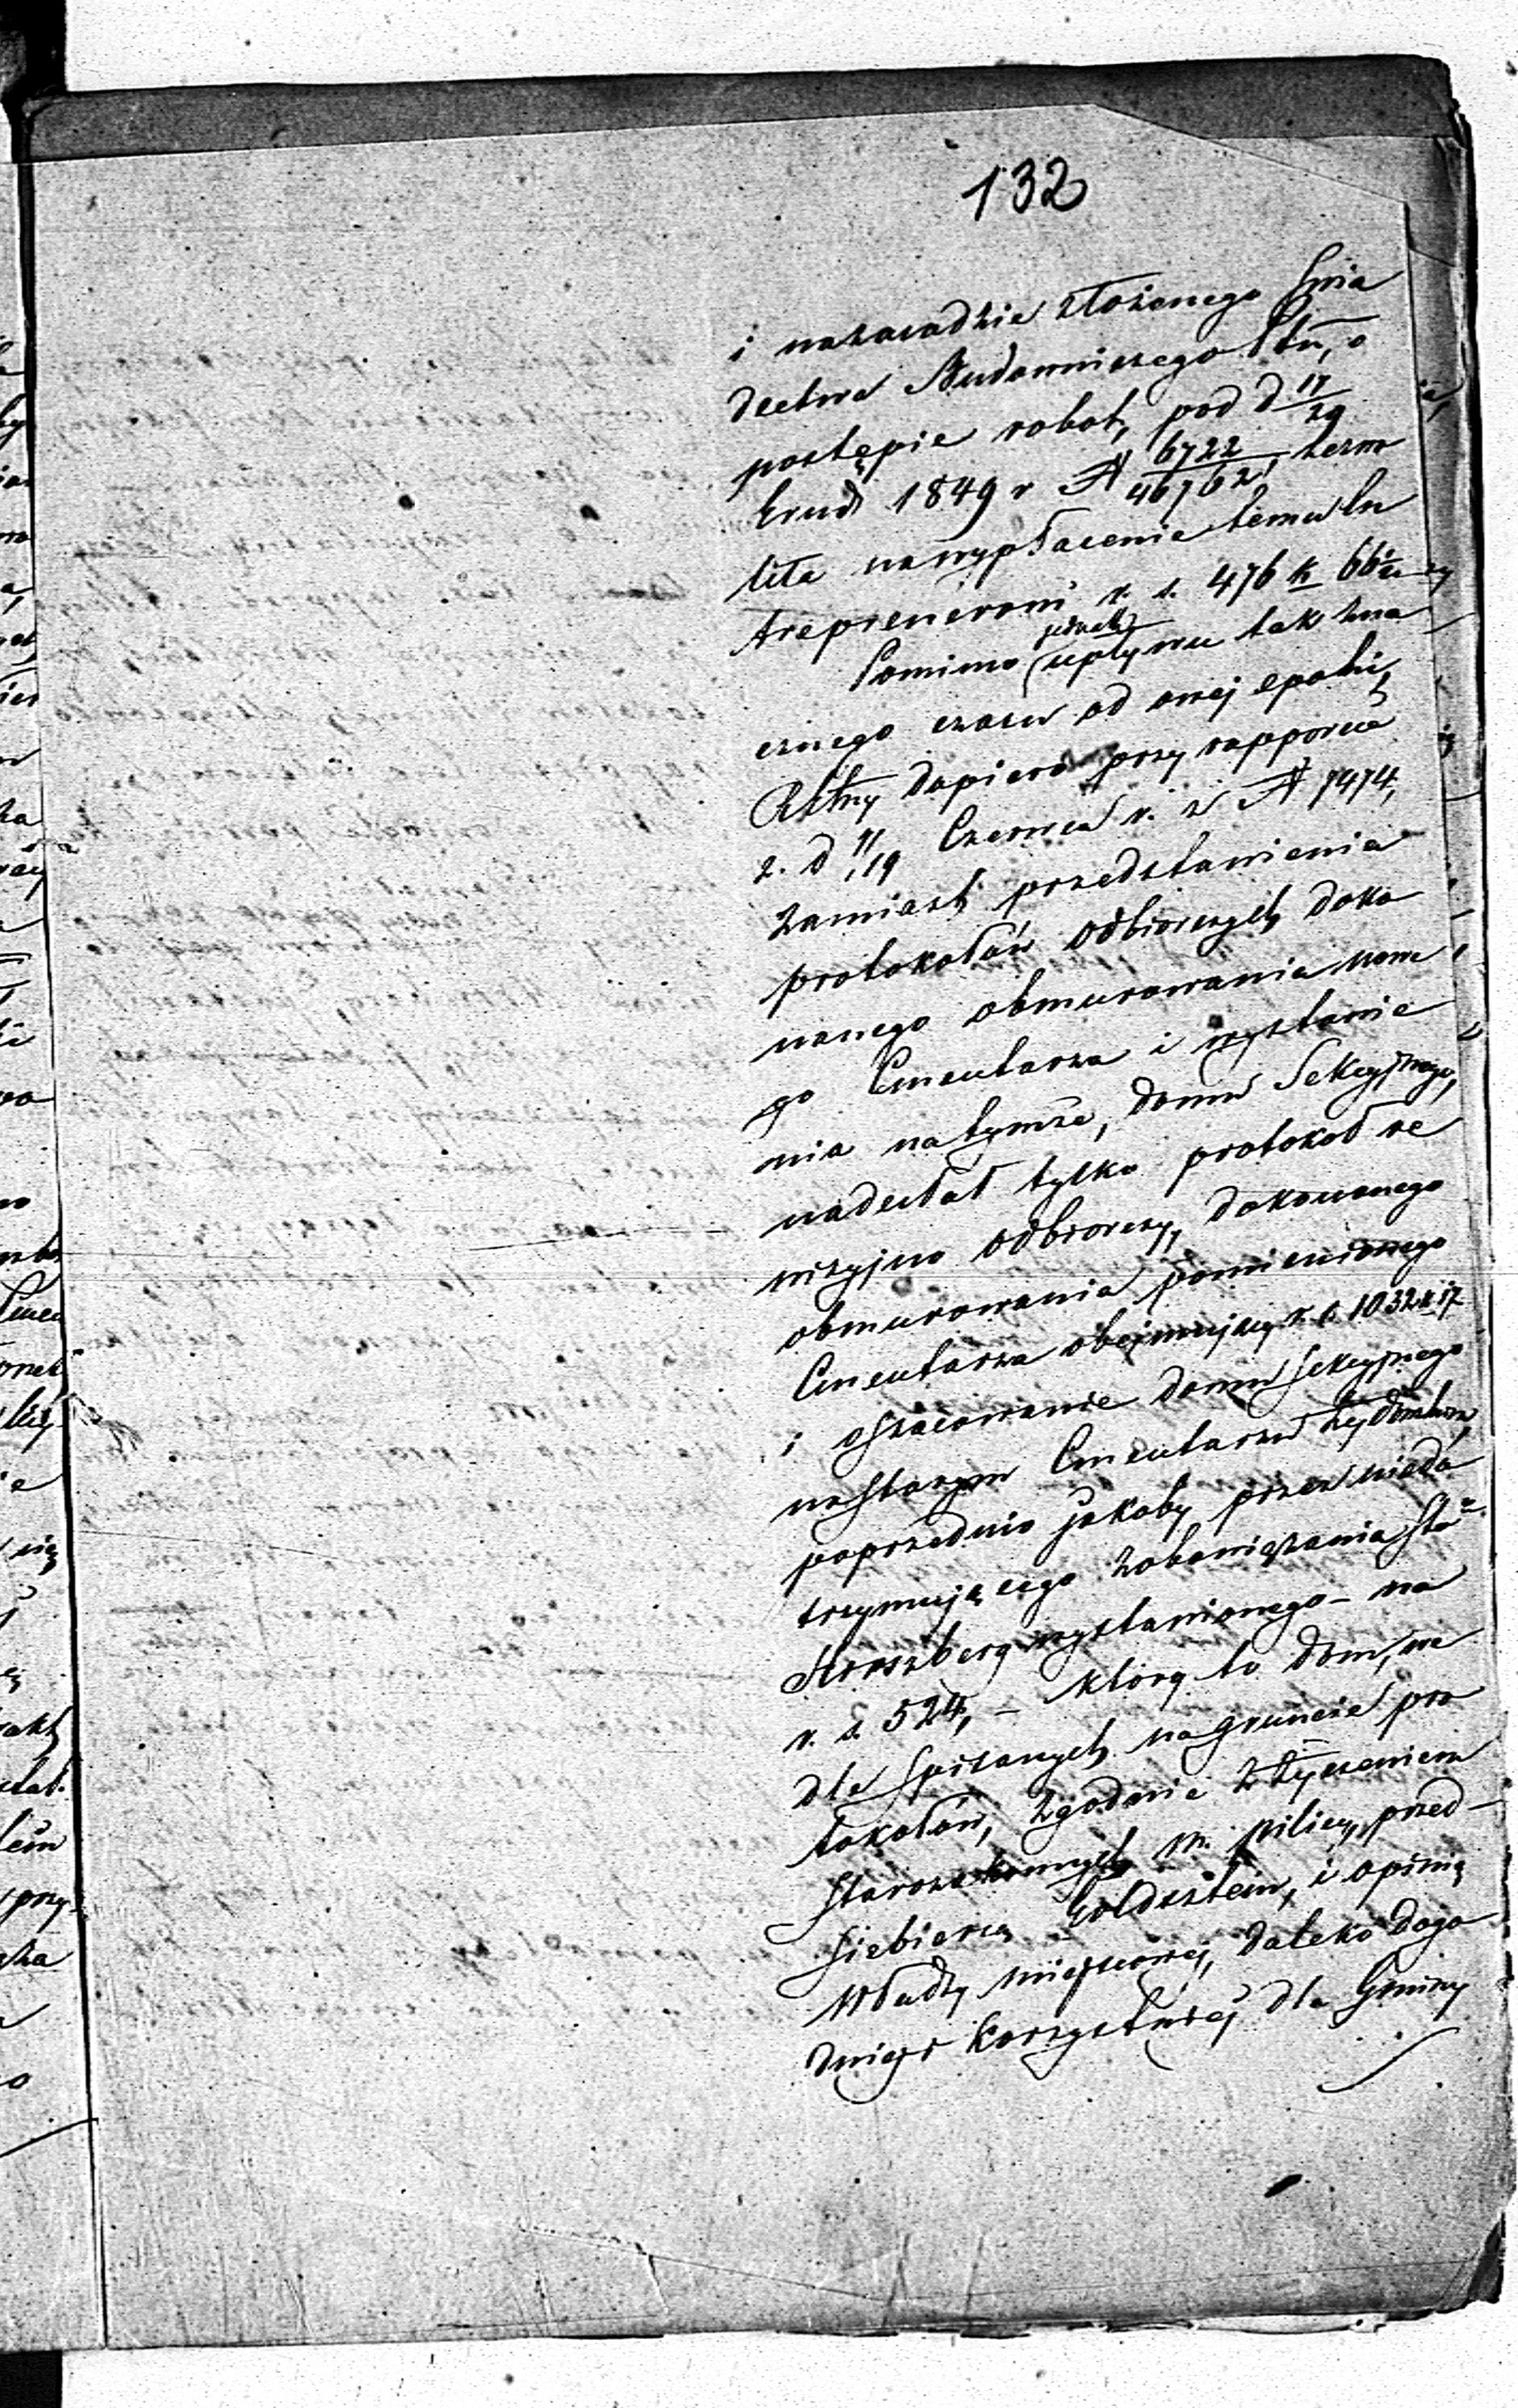 132
i na zasadzie złożonego świa
dectwa Budowniczego Ptu, o
postępie robot, pod d 17/29
Grud 1849 r N 6722/46762, zezwo
liła na wypłacenie temu En
treprenerowi r. s. 476 k 66½
Pomimo jednak upływu tak zna
cznego czasu od owej epoki,
dopiero przy rapporcie
z. d 7/19 Czerwca r. z N 7474,
zamiast przedstawienia
protokołów odbiorczych doko
nanego obmurowania nowe
go Cmentarza i wystawie
nia na tymże, domu Sekcyjnego,
nadesłał tylko protokoł re
wizyjno odbiorczy, dokonanego
obmurowania pomienionego
Cmentarza obejmujący r. s. 1032 k 17
i oszacowanie domu sekcyjnego
na starym Cmentarzu żydowskim,
poprzednio jakoby przez niedo
trzymującego zobowiązania Sta
Herszberg wystawionego – na
r. s. 524, – który to dom, we
dle spisanych na gruncie pro
tokołów, zgodnie z życzeniem
starozakonnych m. Pilicy, przed-
siebiercy Goldsztein, i opinią
Władzy miejscowej, daleko dogo
dniej i korzystniej dla Gminy